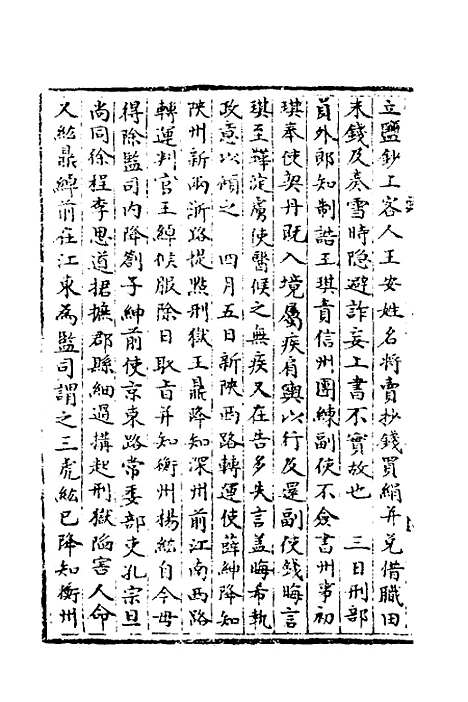 立鹽鈔工客人王安姓名將賣抄錢買絹并兌借職田
末錢及奏雪時隐避詐妄上書不實故也　三日刑部
員外郎知制誥王琪責信州團練副使不僉書州事初
琪奉使契丹既入境屬疾肩輿以行及還副使錢晦言
琪至韡淀虜使醫候之無疾又在告多失言盖晦布執
政意以傾之　四月五日新陝西路轉運使薛紳降知
陜州新兩浙路提點刑獄王鼎降知深州前江南西路
轉運判官王綽候服除日取旨并知衡州楊紘自今毋
得除監司内降劄子紳前使京東路常委部吏孔宗旦
尚同徐程李思道捃摭郡縣細過搆起刑獄陥害人命
又紘鼎綽前在江東為監司謂之三虎紘已降知衡州